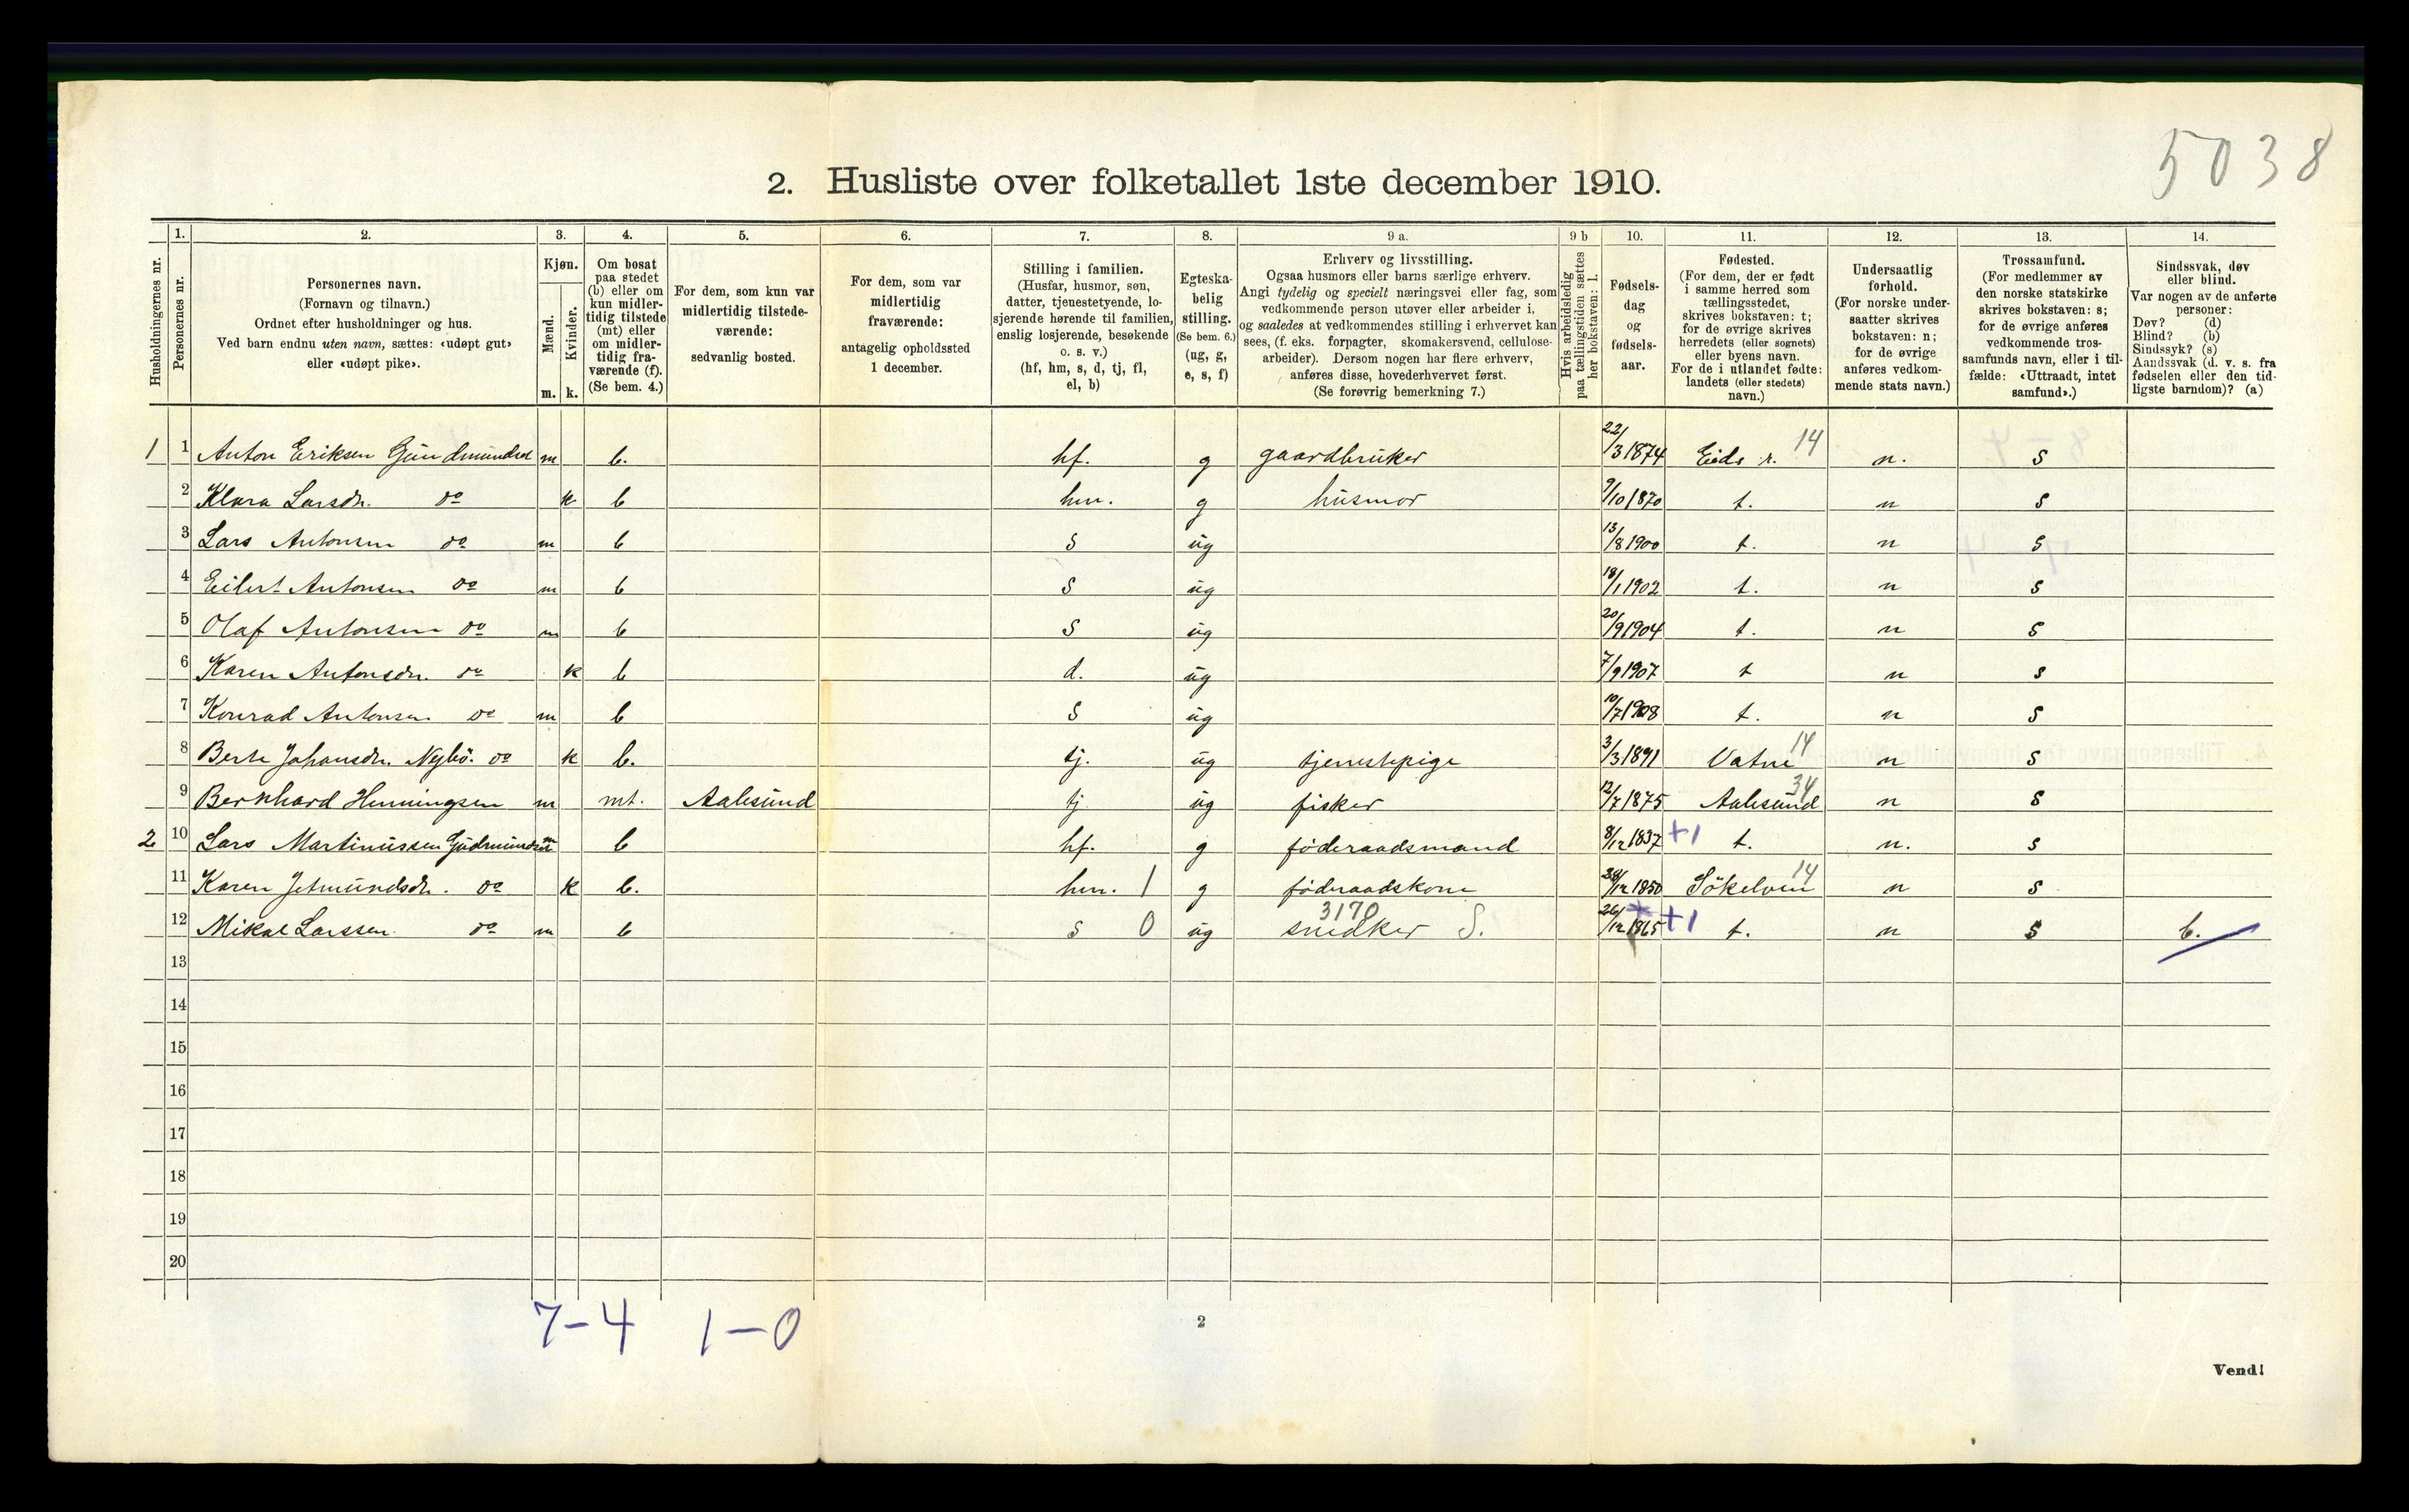 5038
2. Husliste over folketallet 1ste december 1910.
Husholdningernes nr.
1. Personernes nr.
2. Personernes navn.
(Fornavn og tilnavn.)
Ordnet efter husholdninger og hus.
Ved barn endnu uten navn, sættes: «udøpt gut»
eller «udøpt pike».
3. Kjøn.
Mænd. m.
Kvinder. k.
4. Om bosat
paa stedet
(b) eller om
kun midler-
tidig tilstede
(mt) eller
om midler-
tidig fra-
værende (f).
(Se bem. 4.)
5. For dem, som kun var
midlertidig tilstede-
værende:
sedvanlig bosted.
6. For dem, som var
midlertidig
fraværende:
antagelig opholdssted
1 december.
7. Stilling i familien.
(Husfar, husmor, søn,
datter, tjenestetyende, lo-
sjerende hørende til familien,
enslig losjerende, besøkende
o. s. v.)
(hf, hm, s, d, tj, fl,
el, b)
8. Egteska-
belig
stilling.
(Se bem. 6.)
(ug, g,
e, s, f)
9 a. Erhverv og livsstilling.
Ogsaa husmors eller barns særlige erhverv.
Angi tydelig og specielt næringsvei eller fag, som
vedkommende person utøver eller arbeider i,
og saaledes at vedkommendes stilling i erhvervet kan
sees, (f. eks. forpagter, skomakersvend, cellulose-
arbeider). Dersom nogen har flere erhverv,
anføres disse, hovederhvervet først.
(Se forøvrig bemerkning 7.)
9 b Hvis arbeidsledig
paa tællingstiden sættes
her bokstaven: l.
10. Fødsels-
dag
og
fødsels-
aar.
11. Fødested.
(For dem, der er født
i samme herred som
tællingsstedet,
skrives bokstaven: t;
for de øvrige skrives
herredets (eller sognets)
eller byens navn.
For de i utlandet fødte:
landets (eller stedets)
navn.)
12. Undersaatlig
forhold.
(For norske under-
saatter skrives
bokstaven: n;
for de øvrige
anføres vedkom-
mende stats navn.)
13. Trossamfund.
(For medlemmer av
den norske statskirke
skrives bokstaven: s;
for de øvrige anføres
vedkommende tros-
samfunds navn, eller i til-
fælde: «Uttraadt, intet
samfund».)
14. Sindssvak, døv
eller blind.
Var nogen av de anførte
personer:
Døv? (d)
Blind? (b)
Sindssyk? (s)
Aandssvak (d. v. s. fra
fødselen eller den tid-
ligste barndom)? (a)
1 1 Anton Eriksen m b. hf. g gaardbruker 22/3 1874 Eids 14 n. s
2 Klara Larsdr. do k b hm. g husmor 9/10 1870 t. n s
3 Lars Antonsen do m b s ug 13/8 1900 t. n s
4 Eilert Antonsen do m b s ug 18/1 1902 t. n s
5 Olaf Antonsen do m b s ug 20/9 1904 t. n s
6 Karen Antonsdr. do k b d. ug 7/9 1907 t n s
7 Konrad Antonsen do m b s ug 10/7 1908 t. n s
8 Berte Johansdr. Nybö. do k b. tj. ug tjenestepige 3/3 1891 Vatne 14 n s
9 Bernhard Henningsen m mt. Aalesund tj ug fisker 12/7 1875 Aalesund 34 n s
2 10 Lars Martinussen m b hf. g föderaadsmand 8/12 1837 +1 t. n. s
11 Karen Jetmundsdr. do k b. hm. 1 g föderaadskone /12 1850 Sökelven 14 n s
12 Mikal Larssen do m b s 0 ug snedker 3170 S. 26/12 1865 +1 t. n s b.
13
14
15
16
17
18
19
20
7-4 1-0
2
Vend!